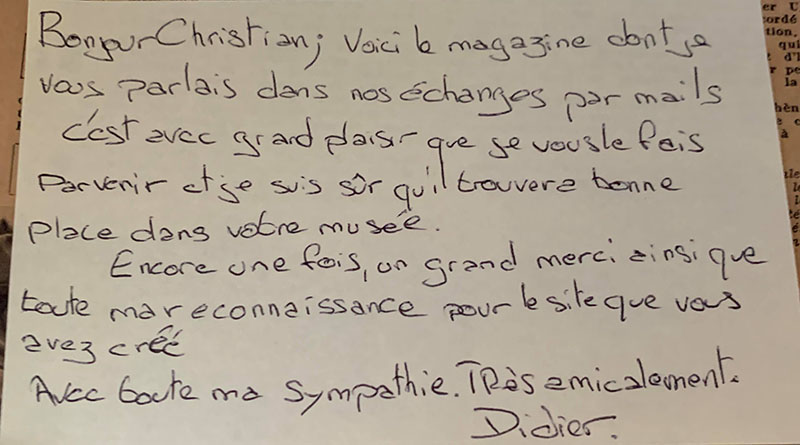 Bonjour Christian, Voici le magazine dont je
vous parlais dans nos échanges par mails
c'est avec grand plaisir que je vous le fais
parvenir et je suis sûr qu'il trouvera bonne
place dans votre musée.
Encore une fois, un grand merci ainsi que
toute ma reconnaissance pour le site que vous
avez créé
Avec toute ma sympathie. Très amicalement.
Didier.